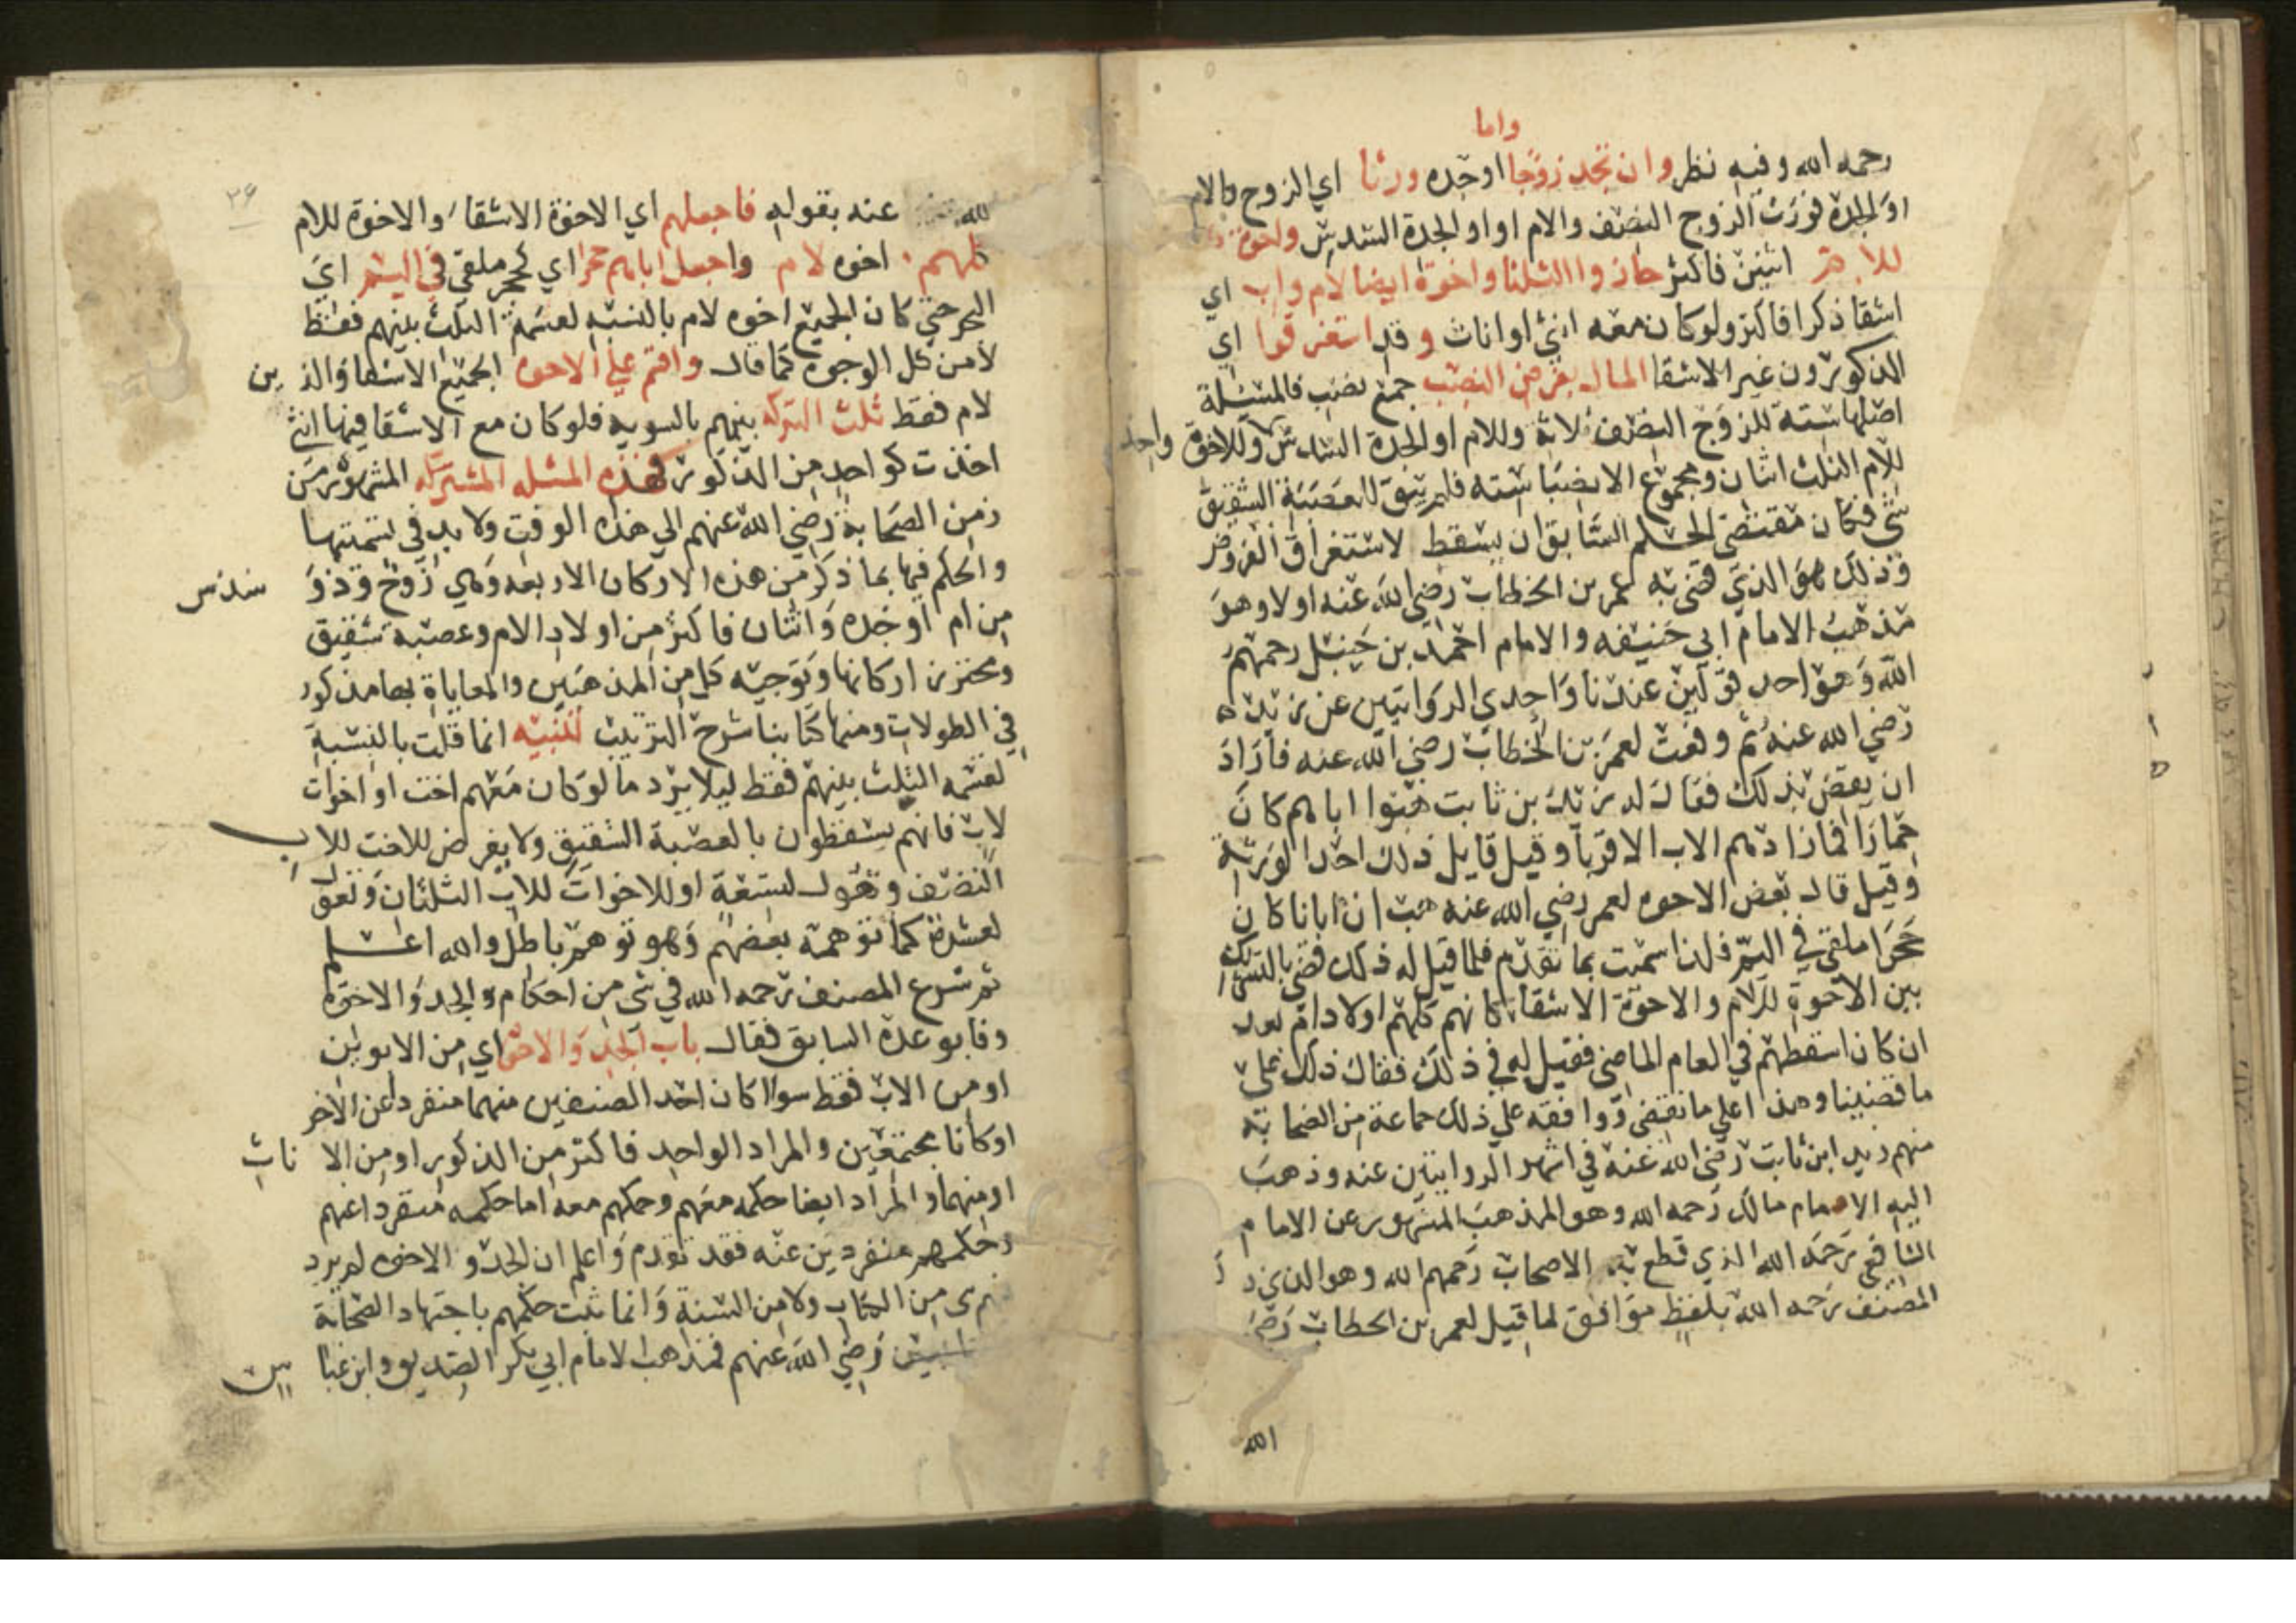 واما
رحمه الله وفيه نظر وان تجد زوجا اوجده ورثا اي الزوج والام
او الجدة فورث الزوج النصف والام او او الجدة السدس واخوة
للام اثنين فاكثر حازوا الثلثا واخوة ايضا لام واب اي
اشقا ذكرا فاكثر ولو كان معه انثى او اناث وقد استغرقوا اي
المذكورون غير الاشقا المال بفرض النصب جمع نصيب فالمسئلة
اصلها ستة للزوج النصف ثلاثة وللام او الجدة السدس وللاخوة واحد
للام الثلث اثنان ومجموع الانصبا ستة فلم يبق للعصبة الشقيق
شي فكان مقتضى الحكم السابق ان يسقط لاستغراق الفروض
وذلك هو الذي قضى به عمر بن الخطاب رضي الله عنه اولا وهو
مذهب الامام ابي حنيفه والامام احمد بن حنبل رحمهم
الله وهو احد قولين عندنا واحدي الروايتين عن زيد
رضي الله عنه ثم وقعت لعمر بن الخطاب رضي الله عنه فاراد
ان يقضي بذلك فقال له زيد بن ثابت هبوا اباهم كان
حمارا فما زادهم الاب الا قربا وقيل قايل ذلك احد الورثة
وقيل قال بعض الاخوه لعمر رضي الله عنه هب ان ابانا كان
حجرا ملقى في اليم فلذا سميت بما تقدم فلما قيل له ذلك قضى بالتشريك
بين الاخوة للام والاخوة الاشقا كانهم كلهم اولاد ام بعد
ان كان اسقطهم في العام الماضي فقيل له في ذلك فقال ذلك على
ما قضينا وهذا على ما نقضي ووافقه علي ذلك جماعة من الصحابة
منهم زيد ابن ثابت رضي الله عنه في اشهر الروايتين عنه وذهب
اليه الامام مالك رحمه الله وهو المذهب المشهور عن الامام
الشافعي رحمه الله الذي قطع به الاصحاب رحمهم الله وهو الذي ذ
المصنف رحمه الله بلفظ موافق لما قيل لعمر بن الخطاب رضي
الله
٣٤
الله عنه بقوله فاجعلهم اي الاخوة الاشقا والاخوة للام
كلهم اخوه لام واجعل اباهم حجرا اي كحجر ملقى في اليم اي
البحر حتي كان الجميع اخوه لام بالنسبه لقسمة الثلث بينهم فقط
لا من كل الوجوه كما قال واقسم علي الاخوه الجميع الاشقا والذين
لام فقط ثلث التركه بينهم بالسويه فلو كان مع الاشقا فيها انثي
اخذت كواحد من الذكور فهذه المسئله المشتركه المشهورة من
زمن الصحابة رضي الله عنهم الي هذه الوقت ولا بد في تسميتها
والحكم فيها بما ذكر من هذه الاركان الاربعه وهي زوج وذو سدس
من ام او جده واثنان فاكثر من اولاد الام وعصبة شقيق
ومحترز اركانها وتوجيه كل من المذهبين والمعاياة بها مذكور
في الطولات ومنها كتابنا شرح الترتيب تنبيه انما قلت بالنسبة
لقسمه الثلث بينهم فقط ليلا يرد ما لو كان معهم اخت او اخوات
لاب فانهم يسقطون بالعصبة الشقيق ولا يفرض للاخت للاب
النصف وتعول لتسعة او للاخوات للاب الثلثان وتعول
لعشرة كما توهمه بعضهم وهو توهم باطل والله اعلم
ثم شرع المصنف رحمه الله في شي من احكام والجد والاخوة
وفا بوعده السابق فقال باب الجد والاخوة اي من الابوين
او من الاب فقط سوا كان احد الصنفين منهما منفردا عن الاخر
او كانا مجتمعين والمراد الواحد فاكثر من الذكور او من الا ناث
او منهما والمراد ايضا حكمه معهم وحكمهم معه اما حكمه منفردا عنهم
وحكمهم منفردين عنه فقد تقدم واعلم ان الجد والاخوه لم يرد
شي من الكتاب ولا من السنة وانما ثبت حكمهم باجتهاد الصحابة
رضي الله عنهم فمذهب الامام ابي بكر الصديق وابن عبا س